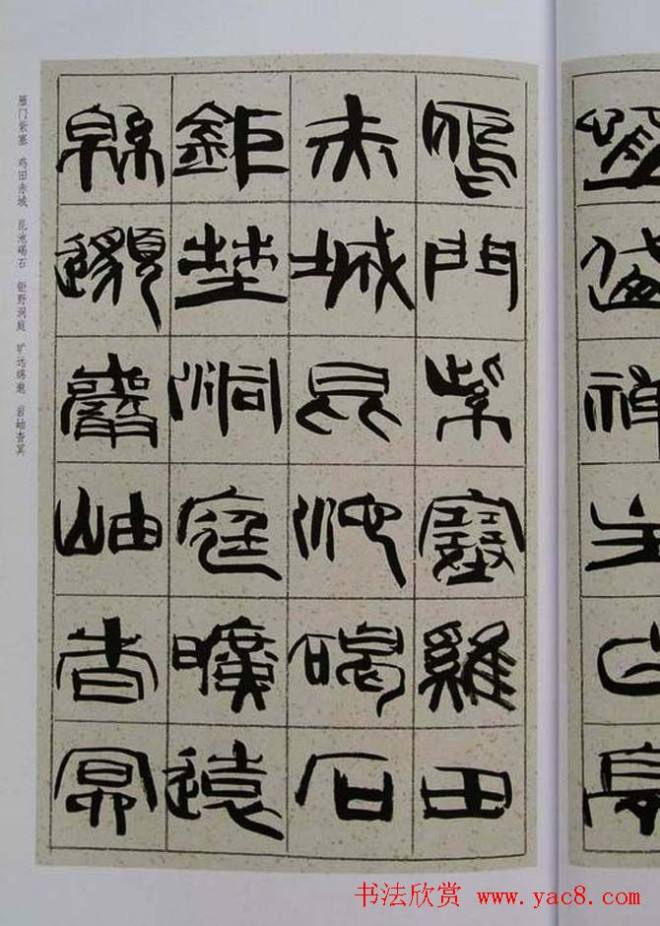 鴈門紫塞雞田
赤城昆池碣石
鉅埜洞庭曠遠
緜邈巖岫杳冥
雁门紫塞 鸡田赤城 昆池碣石 钜野洞庭 旷远绵邈 岩岫杳冥
书法欣赏 www.yac8.com